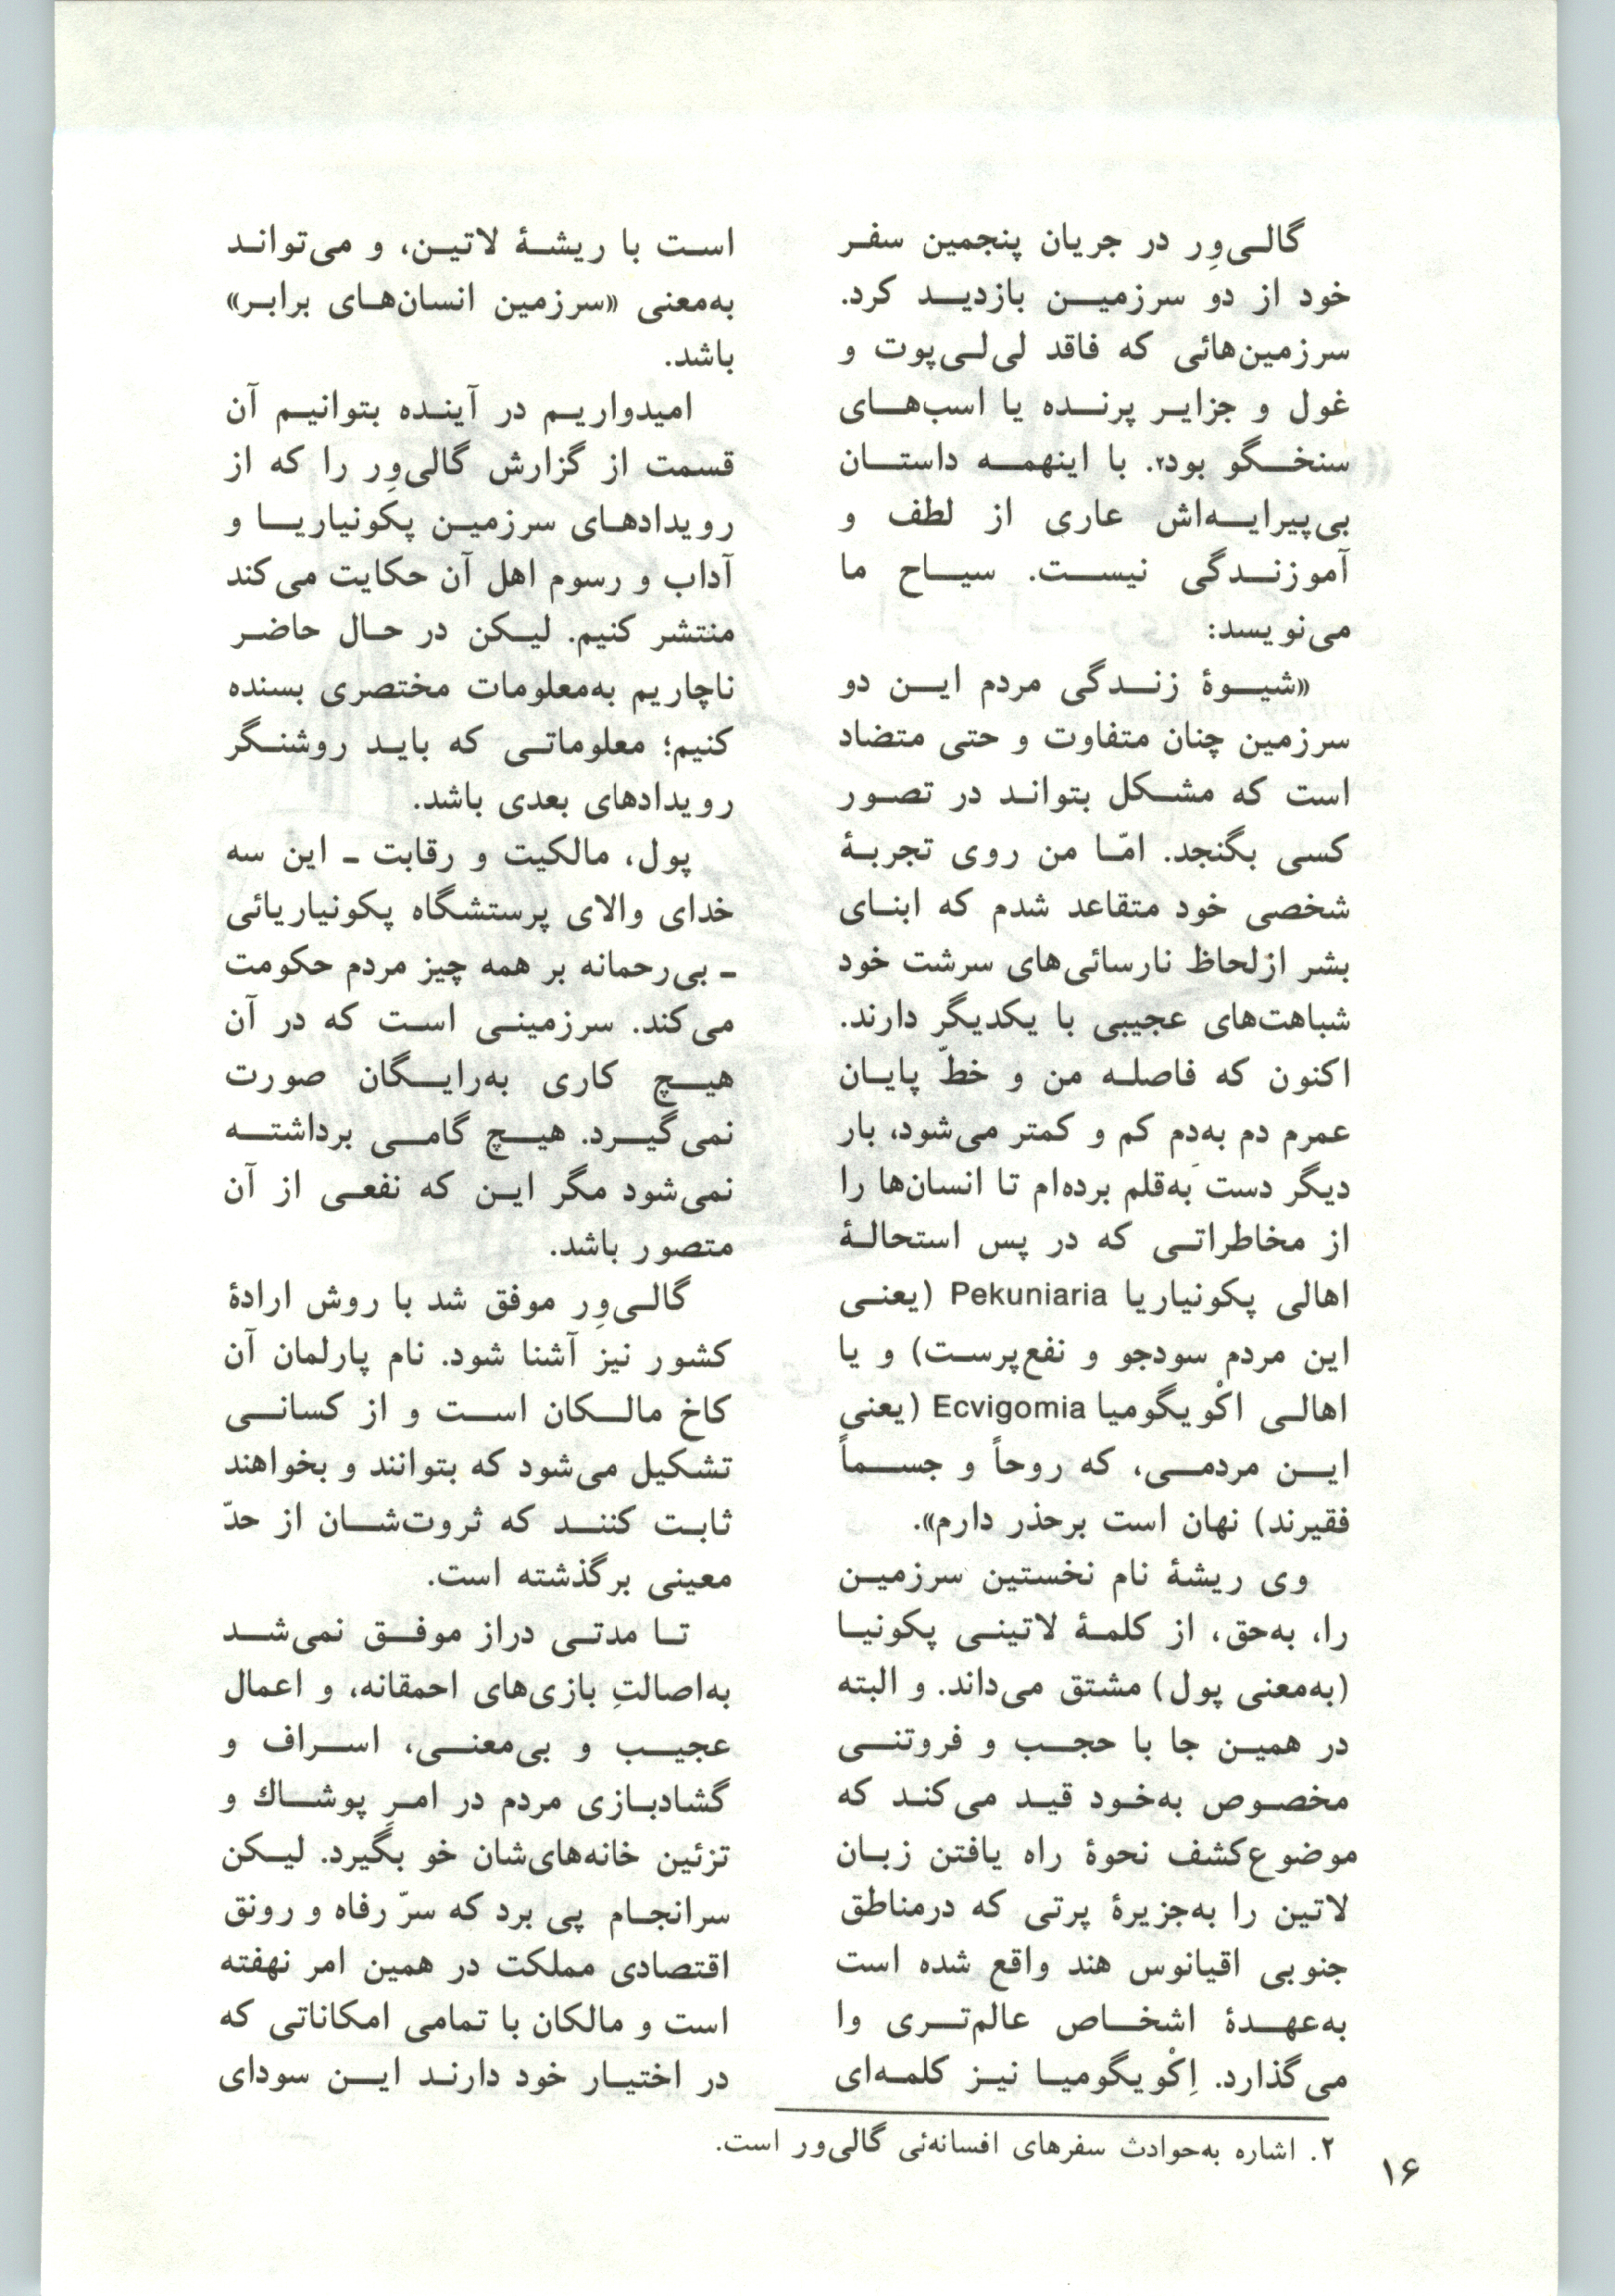 گالی‌وِر در جریان پنجمین سفر
خود از دو سرزمین بازدید کرد.
سرزمین‌هائی که فاقد لی‌لی‌پوت و
غول و جزایر پرنده یا اسب‌های
سنخگو بود۲. با اینهمه داستان
بی‌پیرایه‌اش عاری از لطف و
آموزندگی نیست. سیاح ما
می‌نویسد:
«شیوهٔ زندگی مردم این دو
سرزمین چنان متفاوت و حتی متضاد
است که مشکل بتواند در تصور
کسی بگنجد. امّا من روی تجربهٔ
شخصی خود متقاعد شدم که ابنای
بشر ازلحاظ نارسائی‌های سرشت خود
شباهت‌های عجیبی با یکدیگر دارند.
اکنون که فاصله من و خطّ پایان
عمرم دم به‌دم کم و کمتر می‌شود، بار
دیگر دست به‌قلم برده‌ام تا انسان‌ها را
از مخاطراتی که در پس استحالهٔ
اهالی پکونیاریا Pekuniaria (یعنی
این مردم سودجو و نفع‌پرست) و یا
اهالی اکْویگومیا Ecvigomia (یعنی
این مردمی، که روحاً و جسماً
فقیرند) نهان است برحذر دارم».
وی ریشهٔ نام نخستین سرزمین
را، به‌حق، از کلمهٔ لاتینی پکونیا
(به‌معنی پول) مشتق می‌داند. و البته
در همین جا با حجب و فروتنی
مخصوص به‌خود قید می‌کند که
موضوع‌کشف نحوهٔ راه یافتن زبان
لاتین را به‌جزیرهٔ پرتی که درمناطق
جنوبی اقیانوس هند واقع شده است
به‌عهدهٔ اشخاص عالم‌تری وا
می‌گذارد. اِکْویگومیا نیز کلمه‌ای
است با ریشهٔ لاتین، و می‌تواند
به‌معنی «سرزمین انسان‌های برابر»
باشد.
امیدواریم در آینده بتوانیم آن
قسمت از گزارش گالی‌وِر را که از
رویدادهای سرزمین پکونیاریا و
آداب و رسوم اهل آن حکایت می‌کند
منتشر کنیم. لیکن در حال حاضر
ناچاریم به‌معلومات مختصری بسنده
کنیم؛ معلوماتی که باید روشنگر
رویدادهای بعدی باشد.
پول، مالکیت و رقابت ـ این سه
خدای والای پرستشگاه پکونیاریائی
ـ بی‌رحمانه بر همه چیز مردم حکومت
می‌کند. سرزمینی است که در آن
هیچ کاری به‌رایگان صورت
نمی‌گیرد. هیچ گامی برداشته
نمی‌شود مگر این که نفعی از آن
متصور باشد.
گالی‌وِر موفق شد با روش ارادهٔ
کشور نیز آشنا شود. نام پارلمان آن
کاخ مالکان است و از کسانی
تشکیل می‌شود که بتوانند و بخواهند
ثابت کنند که ثروت‌شان از حدّ
معینی برگذشته است.
تا مدتی دراز موفق نمی‌شد
به‌اصالتِ بازی‌های احمقانه، و اعمال
عجیب و بی‌معنی، اسراف و
گشادبازی مردم در امرِ پوشاك و
تزئین خانه‌های‌شان خو بگیرد. لیکن
سرانجام پی برد که سرّ رفاه و رونق
اقتصادی مملکت در همین امر نهفته
است و مالکان با تمامی امکاناتی که
در اختیار خود دارند این سودای
۲. اشاره به‌حوادث سفرهای افسانه‌ئی گالی‌ور است.
۱۶